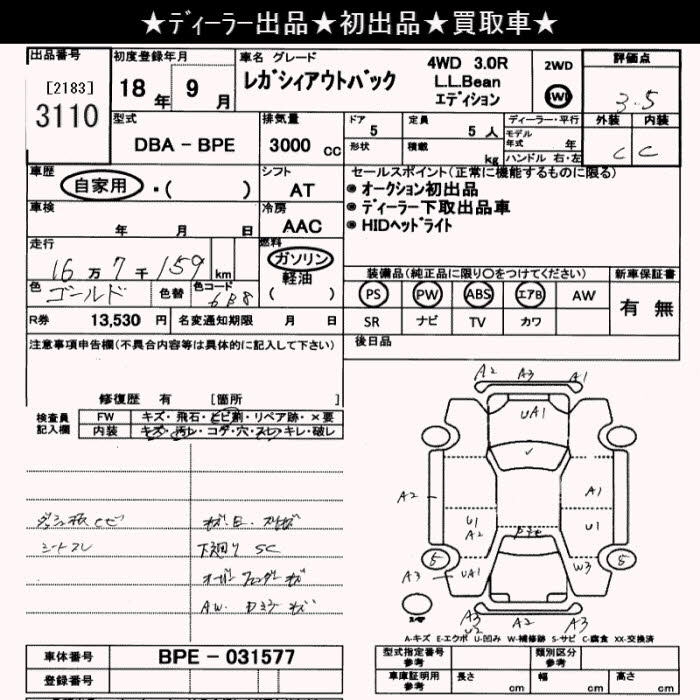 ★ディーラー出品★初出品★買取車★
出品番号
[2183]
3110
初度登録年月
18年 9月
車名 グレード
レガシィアウトバック
4WD 3.0R
L.L.Bean
エディション
2WD
W
評価点
3.5
外装 内装
C C
型式
DBA－BPE
排気量
3000 cc
ドア
5
定員
5人
形状
積載
kg
ディーラー・平行
モデル年式 年
ハンドル 右・左
車歴
自家用 ・( )
シフト
AT
車検
年 月 日
冷房
AAC
走行
16万7千159km
燃料
ガソリン
軽油
( )
色
ゴールド
色替
色コード
6B8
R券 13,530 円
名変通知期限 月 日
セールスポイント(正常に機能するものに限る)
◉オークション初出品
◉ディーラー下取出品車
◉HIDヘッドライト
装備品(純正品に限り〇をつけてください)
PS PW ABS エアB AW
SR ナビ TV カワ
新車保証書
有 無
後日品
注意事項申告欄(不具合内容等は具体的に記入して下さい)
修復歴 有 [箇所 ]
検査員
記入欄
FW キズ・飛石・ヒビ割・リペア跡・×要
内装 キズ・汚レ・コゲ・穴・スレ・キレ・破レ
シートスレ
下廻り SC
A2 A3 A1
UA1
A2
A1
U1
A2
U1
5
5
A3
UA1
W3
A3
U2
A2
A3
A-キズ E-エクボ U-凹み W-補修跡 S-サビ C-腐食 XX-交換済
車体番号 BPE－031577
登録番号
型式指定番号
参考
類別区分
参考
車庫証明用
参考
長さ cm
幅 cm
高さ cm